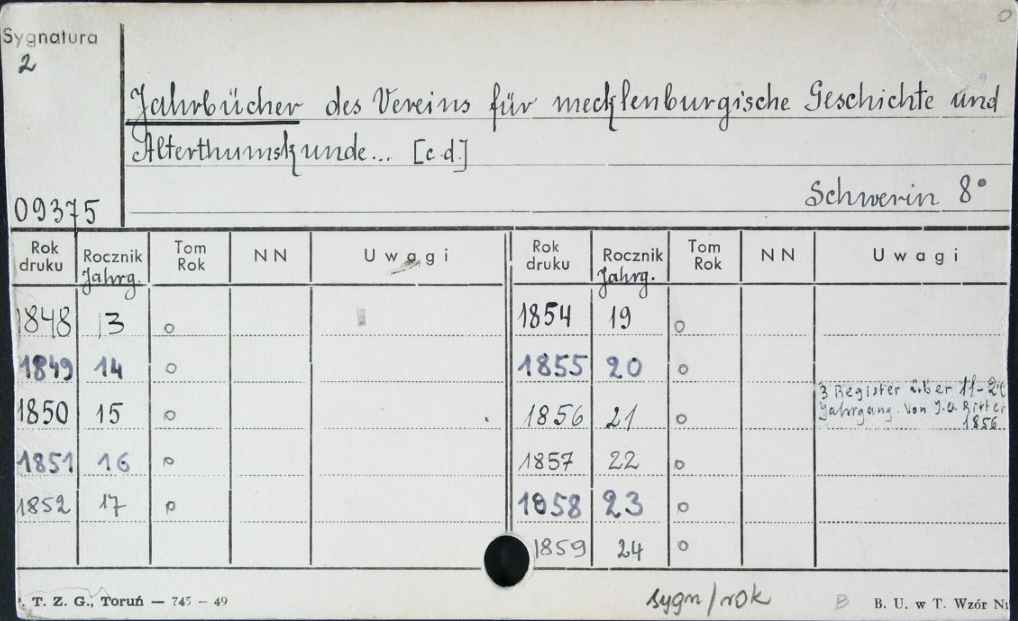 Sygnatura
2
Jahrbücher des Vereins für mecklenburgische Geschichte und
Alterthumskunde... [c.d.]
Schwerin 8°
09375
Rok druku Rocznik Jahrg. Tom Rok NN Uwagi Rok druku Rocznik Jahrg. Tom Rok NN Uwagi
1848 13 o 1854 19 o
1849 14 o 1855 20 o
3 Register über 11-20
Jahrgang. von J.G. Ritter
1856
1850 15 o 1856 21 o
1851 16 o 1857 22 o
1852 17 o 1858 23 o
1859 24 o
T. Z. G., Toruń — 745 - 49 sygn/rok B B. U. w T. Wzór